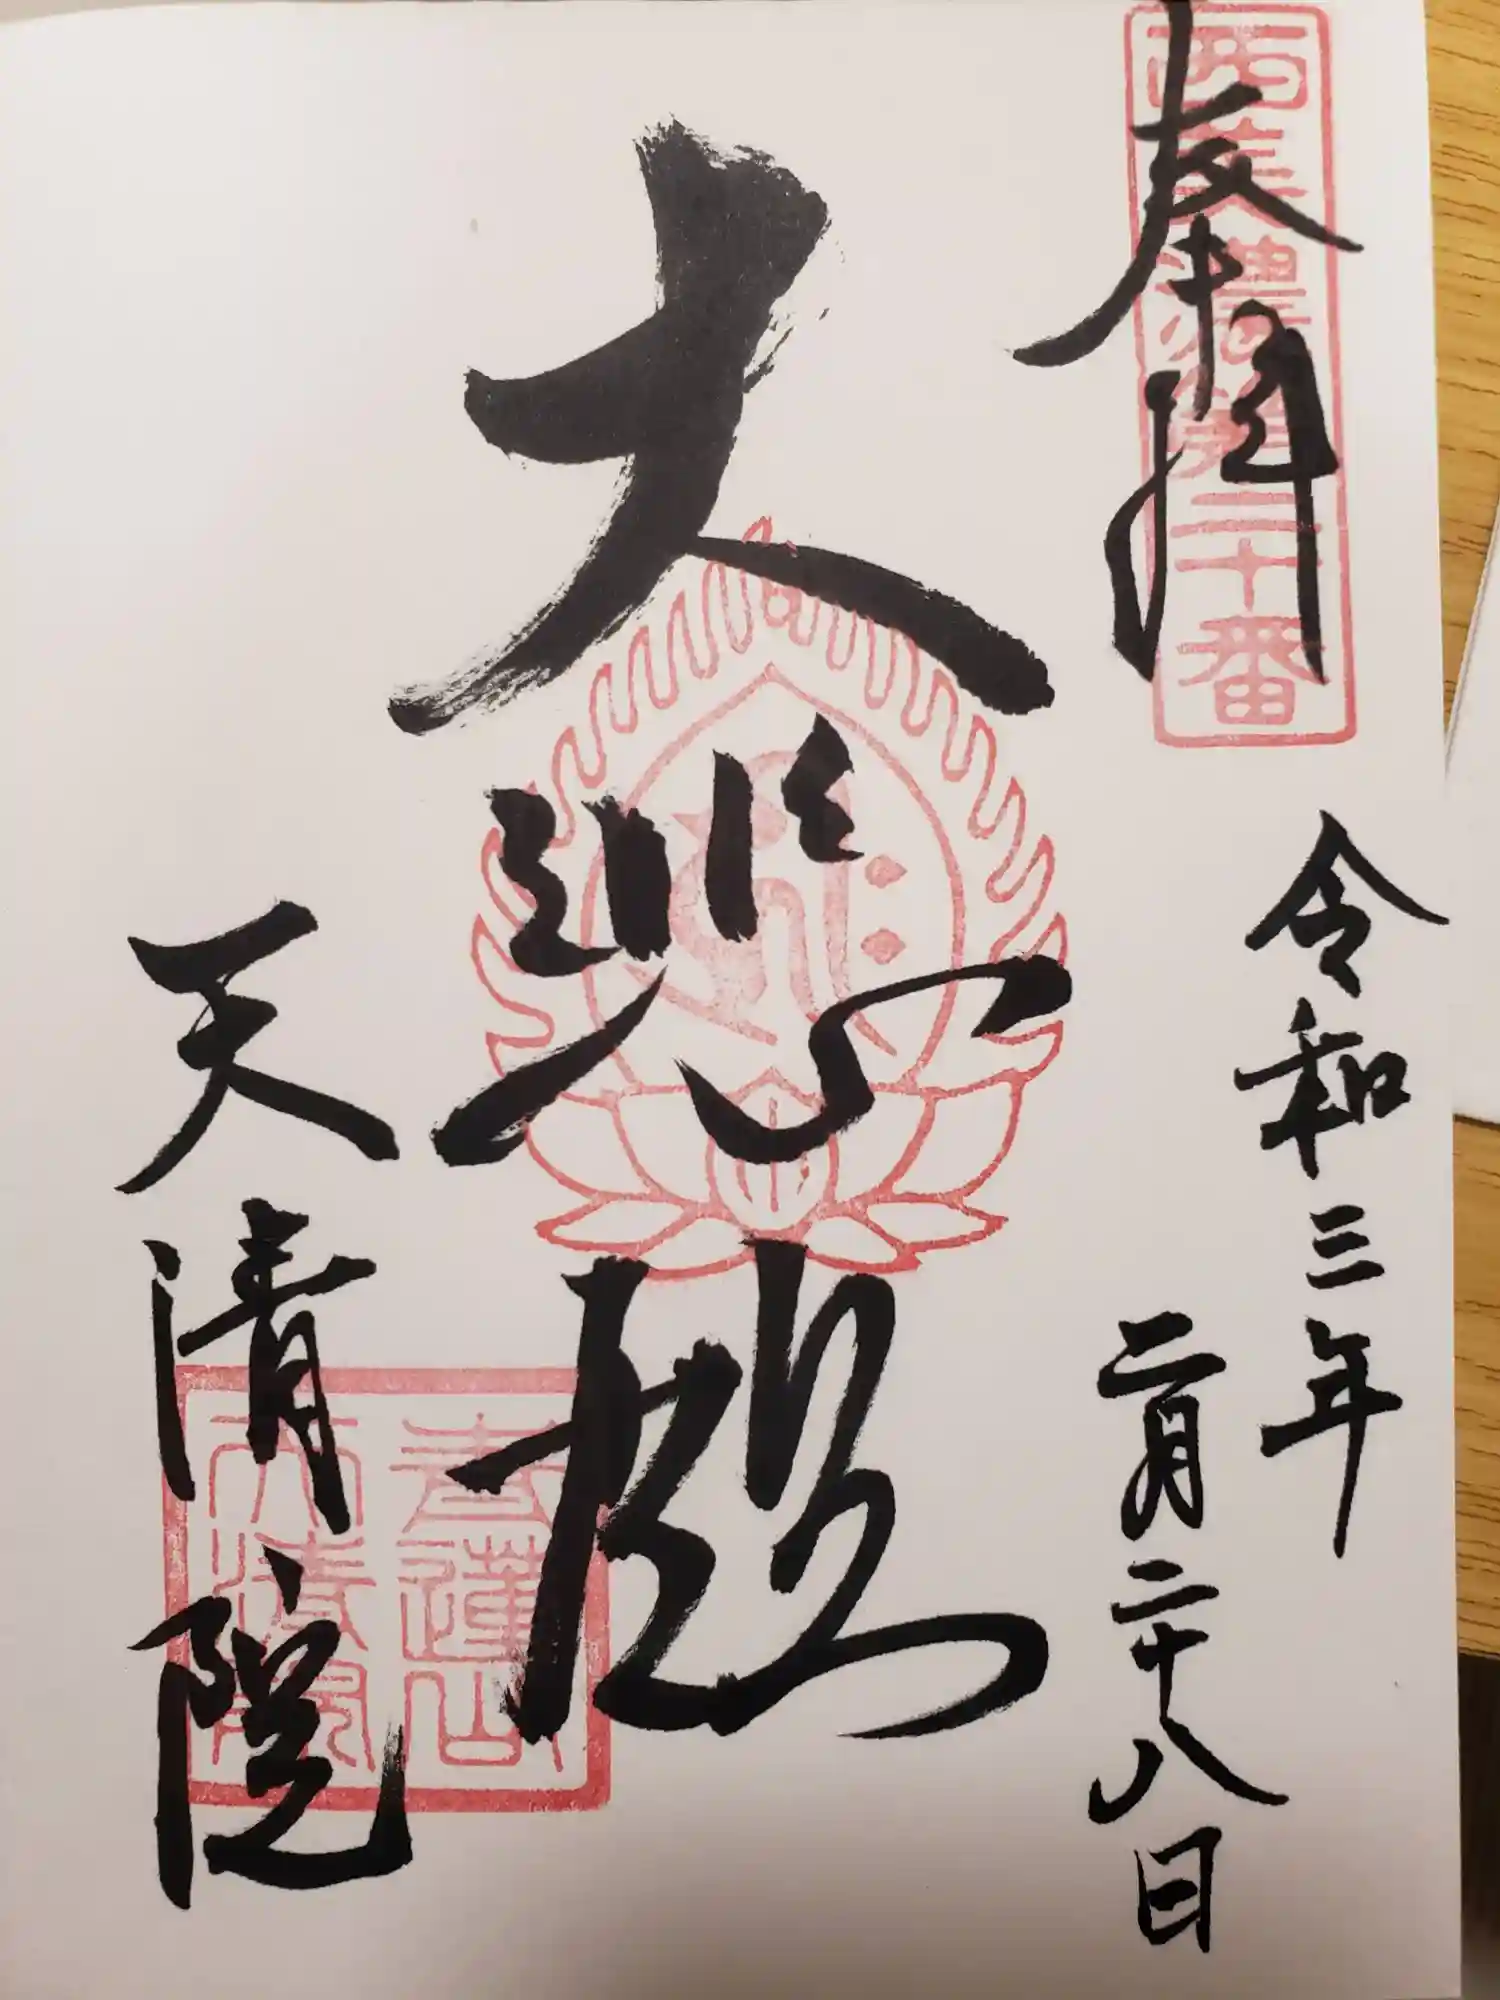 奉拝
西美濃第三十番
令和三年
二月二十八日
大悲殿
天清院
青蓮山
天清院